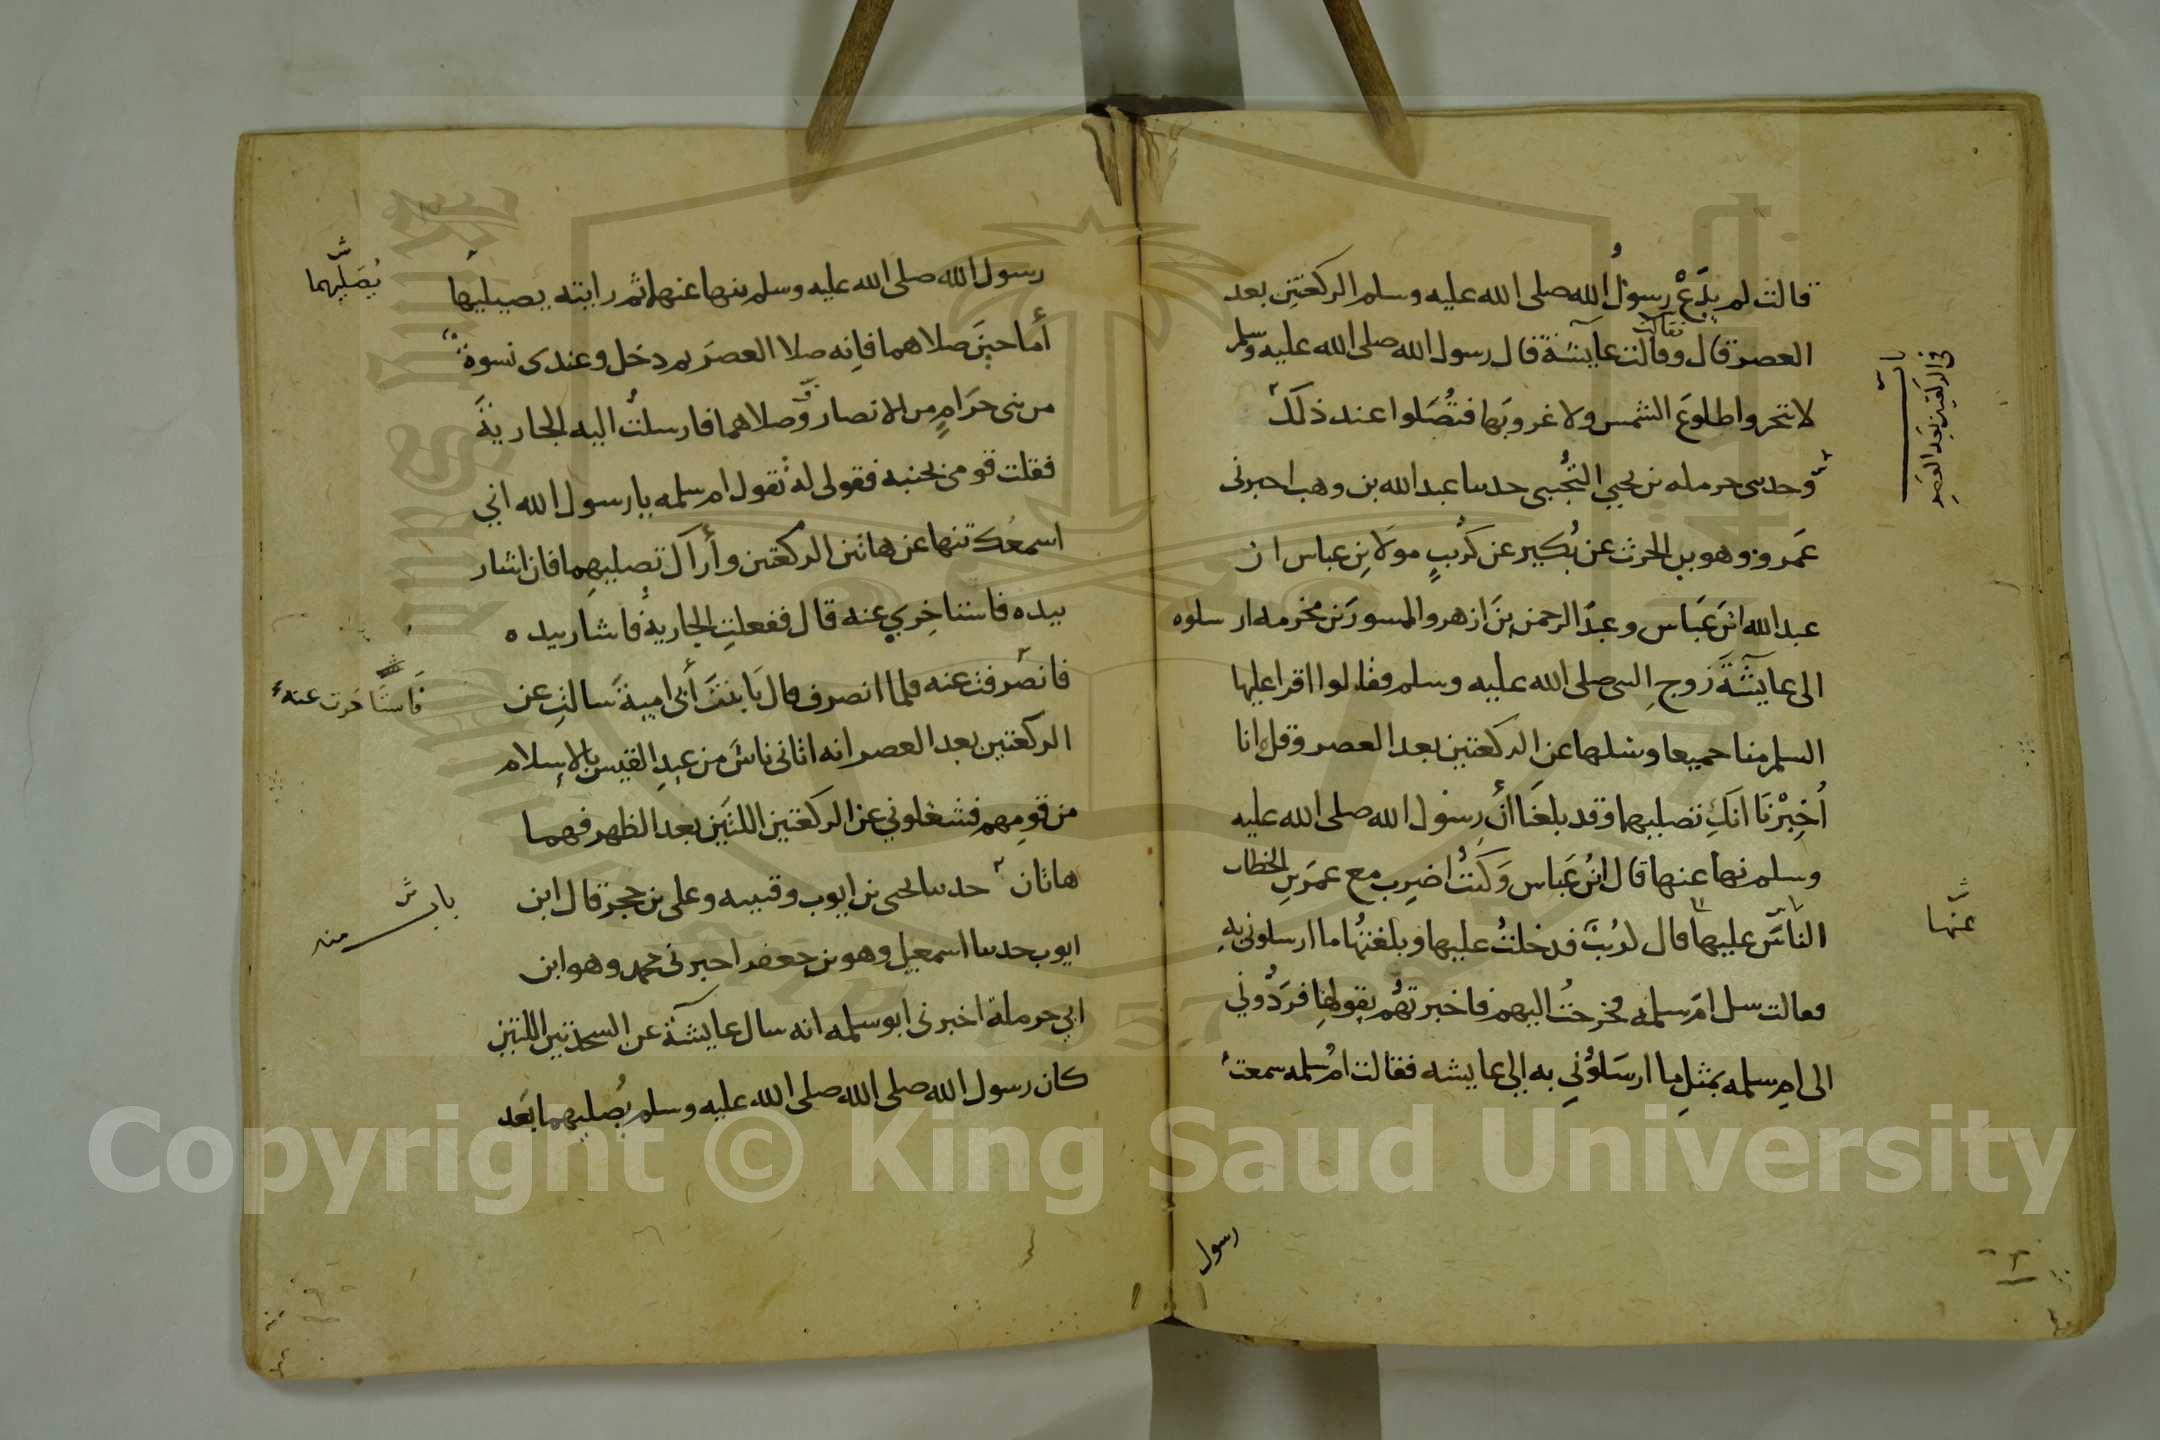 قالت لم يدَعْ رسولُ الله صلى الله عليه وسلم الركعتين بعد
العصر قال وقالت عايشة قال رسول الله صلى الله عليه وسلم
فقالت
لا تتحروا طلوعَ الشمس ولا غروبَها فتُصَلوا عند ذلك
وحدثنى حرمله بن يحيي التُّجيبى حدثنا عبد الله بن وهب اخبرنى
عَمرو وهو بن الحرث عن بُكير عن كُريبٍ مولا بن عباس ان
عبد الله ابن عَباس وعبدَ الرحمن بنَ ازهر والمسورَ بن مخرمه ارسلوه
الى عايشَةَ زوجِ النبى صلى الله عليه وسلم فقالوا اقرا عليها
السلم منا جميعا وسلها عن الركعتين بعد العصر وقل انا
أُخبِرْنَا انَكِ تصليهما وقد بلغنَا أن رسُول الله صلى الله عليه
وسلم نها عنها قال ابنُ عَباس وَكنتُ اضرب مع عمرَ بنِ الخطاب
الناسَ عليها قال كريبٌ فدخلتُ عليها وبلغتُها ما ارسلونى بهِ
فقالت سل امَ سلمه فخرجتُ اليهم فاخبرتهُم بقولها فرَدُّوني
الى امِ سلمه بمثلِ ما ارسَلوُنيِ به الى عايشه فقالت امُ سلمه سمعتُ
باب
فى الركعتين بَعد العَصرِ
عنها
رسول
رسول الله صلى الله عليه وسلم ينها عنها ثم رايته يصيليها
أما حينَ صلاهما فاِنه صلا العصرَ ثم دخل وعندى نسوة
من بنى حرَامٍ من الانصار وصلاهما فارسلتُ اليه الجارية
فقلت قومى بجنبه فقولى له تقول ام سلمه يا رسول الله اني
اسمعُك تنها عن هاتين الركعتين وأراك تصليهما فان اشار
بيده فاستاخِري عنه قال ففعلتِ الجارية فاشار بيده
فانصَرفت عنه فلما انصرف قال يَا بنتَ أبى اميةَ سَالتِ عن
الركعتين بعد العصر انه اتانى ناسٌ من عبدِ القيس بالاِسلام
من قومِهم فشغلوني عن الركعتين اللتَين بعد الظهر فهما
هاتان حدثنا يحيى بن ايوب وقتيبه وعلى بن حجر قال ابن
ايوب حدثنا اسمعيل وهو بن جعفر اخبرنى محمد وهو ابن
ابي حرملة اخبرنى ابو سلمه انه سال عايشَة عن السجدتين اللتين
كان رسول الله صلى الله صلى الله عليه وسلم يُصليهما بَعد
يُصَلِّيهما
فَاستَاخرت عنه
باب
منه
Copyright © King Saud University
1957